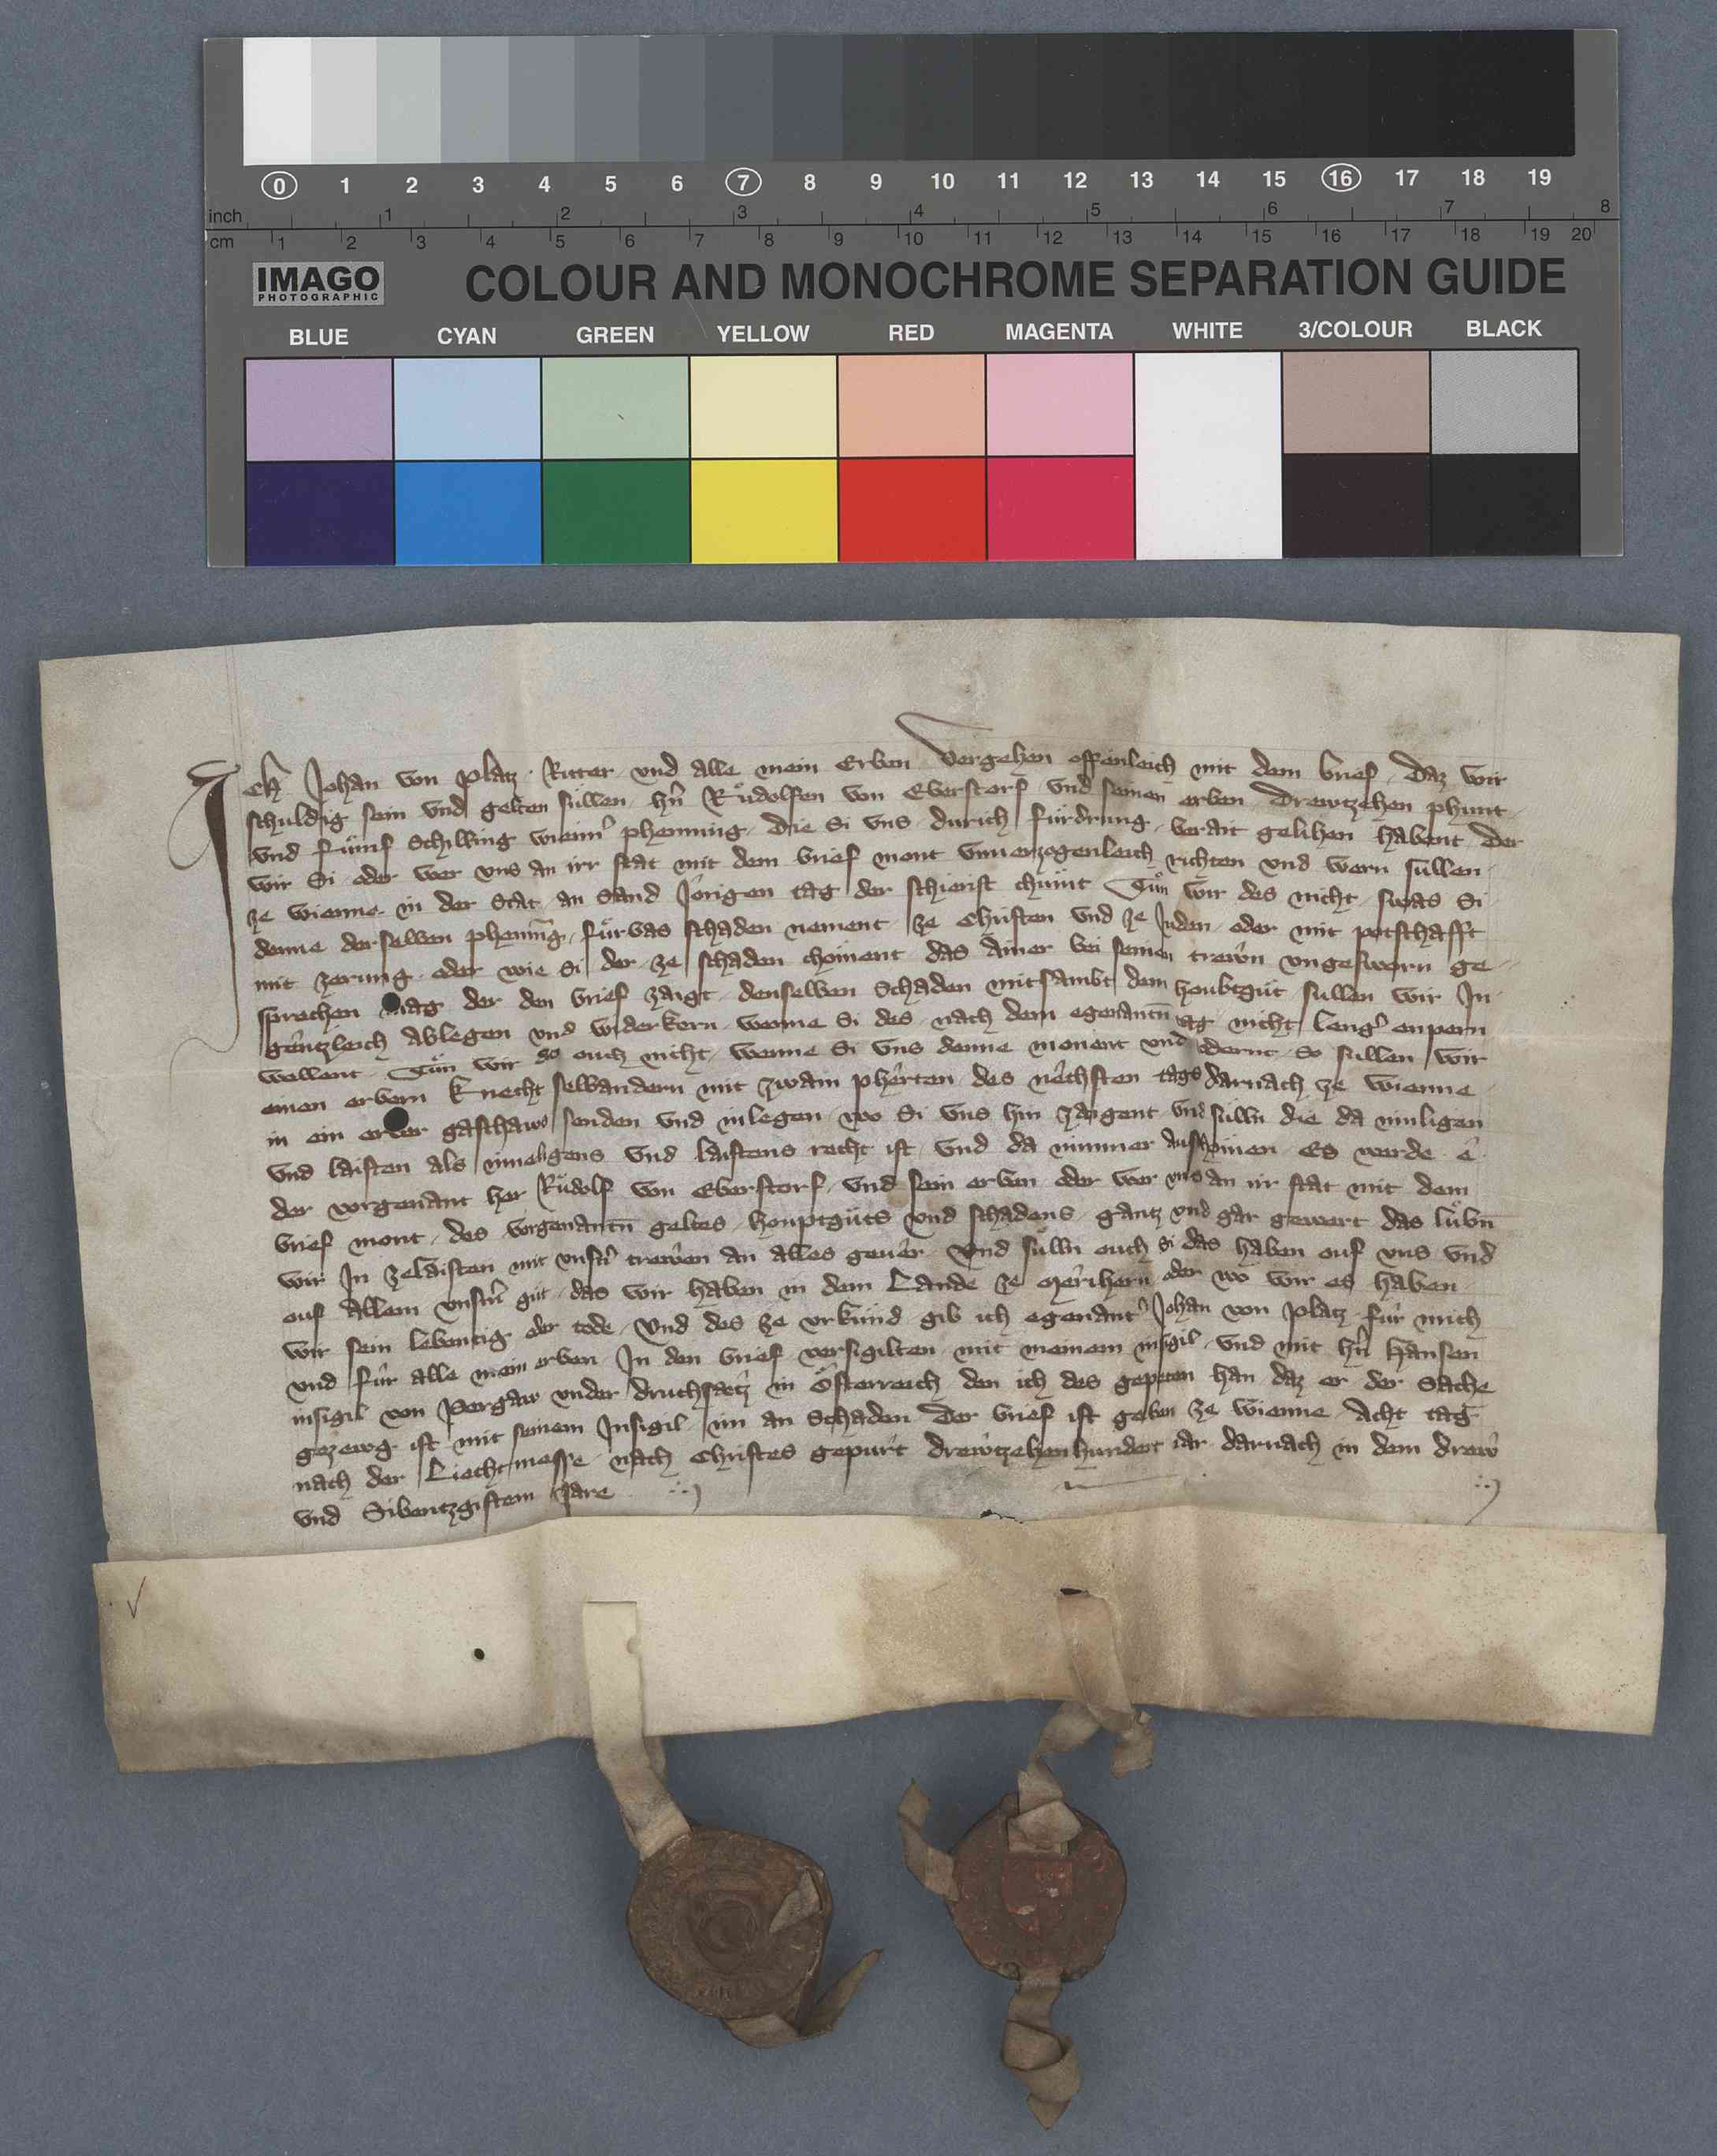 0 1 2 3 4 5 6 7 8 9 10 11 12 13 14 15 16 17 18 19
inch 1 2 3 4 5 6 7 8
cm 1 2 3 4 5 6 7 8 9 10 11 12 13 14 15 16 17 18 19 20
IMAGO
PHOTOGRAPHIC
COLOUR AND MONOCHROME SEPARATION GUIDE
BLUE CYAN GREEN YELLOW RED MAGENTA WHITE 3/COLOUR BLACK
Ich Johan von Platz Ritter vnd alle mein Erben Vergehen offenleich mit dem brief Daz wir
schuldig sein vnd gelten süllen hn̄ Růdolfen von Eberstorf vnd seinen erben Drewtzehen phunt
vnd fümf Schilling wienn̄ phenning Die Si vns durich fürdrung berait gelihen habent Der
wir Si oder wer vns an irr stat mit dem brief mont vnuerzogenleich richten vnd wern süllen
ze wienne in der Stat an Sand Jörigen tag der schierist chumt Tün wir des nicht swas Si
denne derselben phenn̄ig fürbas schaden nement ze Christen vnd ze Juden oder mit potschafft
mit zerung oder wie Si der ze schaden chöment das ainer bei seinen trewn vngesworn ge
sprechen mag der den brief zaigt denselben Schaden mitsambt dem houbtgüt sullen wir In
gentzleich ablegen vnd widerkern wenne Si des nach dem egenantn̄ tag nicht leng' enpern
wellent Tün wir so ouch nicht wenne Si vns denne monent vnd vodernt so sullen wir
einen erbern Knecht selbandern mit zwain pherten des nechsten tags darnach ze wienne
in ein erber gasthaws senden vnd inlegen wo Si vns hin zaigent vnd sülln die da innligen
vnd laisten als innligens vnd laistens recht ist vnd da nimmer auschömen Es werde e
der vorgenant her Rüdolf von Eberstorf vnd sein erben oder wer vns an irr stat mit dem
brief mont des vorgenantn̄ geltes houptgüts vnd schadens gantz vnd gar gewert das lubn̄
wir In zelaisten mit vnsn̄ trewen an alles geuer Vnd sülln ouch si das haben ouf vns vnd
ouf allem vnsn̄ güt das wir haben in dem Lande ze Merihern oder wo wir es haben
wir sein lebentig oder tode Vnd des ze vrkünd gib ich egenant' Johan von Platz für mich
vnd für alle mein erben In den brief versigilten mit meinem insigil vnd mit hn̄ Hansen
insigil von Pergaw vnder druchsaetz in Österreich den ich des gepeten han daz er der Sache
gezewg ist mit seinem Insigil im an Schaden Der brief ist geben ze wienne Acht tag
nach der Liechtmesse nach Christes gepürt drewtzehenhundert iar darnach in dem drew
vnd Sibentzgistem Jare